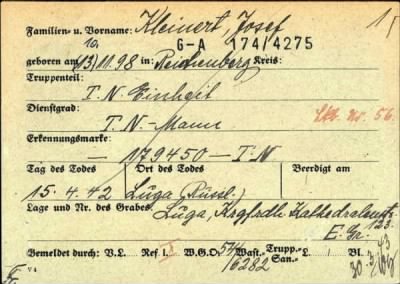 Familien- u. Vorname: Kleinert, Josef 1
10. G-A 174/4275
geboren am 13.11.98 in: Reichenberg Kreis:
Truppenteil:
T. N. Einheit
Dienstgrad: Stb. Nr. 56.
T. N.-Mann
Erkennungsmarke:
— 179450 — T. N
Tag des Todes Ort des Todes Beerdigt am
15. 4. 42 Luga (Russl.)
Lage und Nr. des Grabes: Luga, Krgfrdh. Kathedralenstr.
E. Gr. 123.
Gemeldet durch: V.L. Ref I. W.G.O. 54/6282 Wast.- Trupp.- San.- L. / Bl.
30. 3. 43
V 4